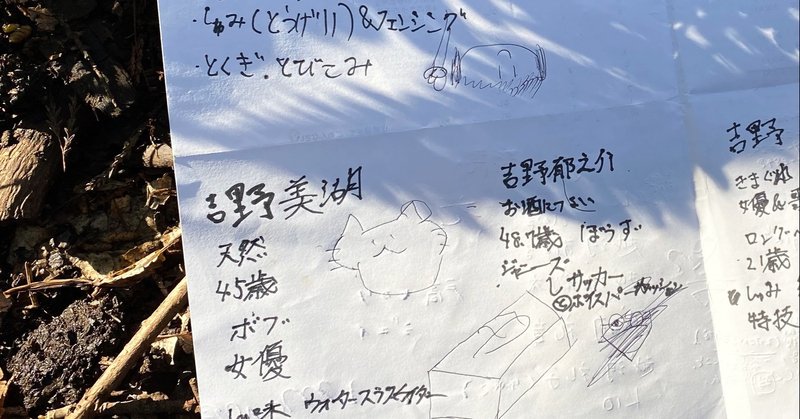 ・しゅみ(とうげリ)&フェンシング
・とくぎ.とびこみ
吉野美湖
天然
45歳
ボブ
女優
趣味 ウォーター
吉野郁之介
お酒につよい
48.7歳 ぼうず
ジャニーズ
サッカー
ボイスパーカッション
吉野
きまぐれ
女優&
ロング
21歳
しゅみ
特技